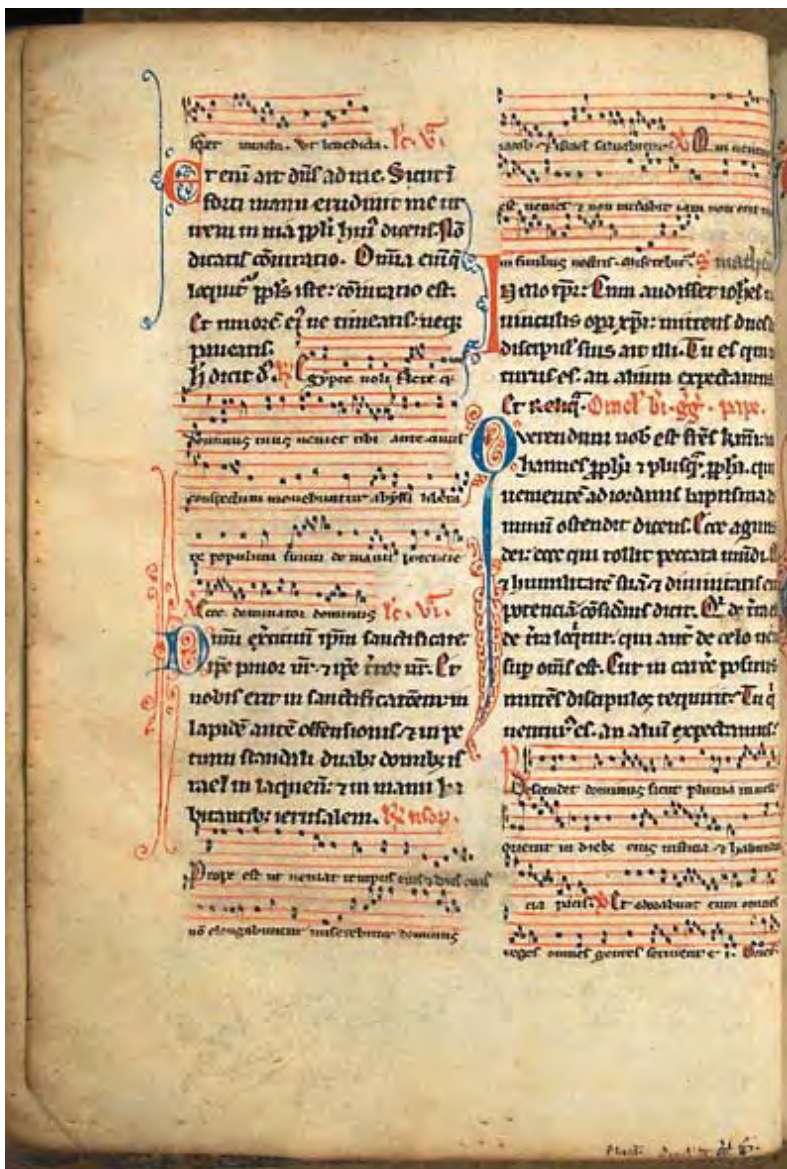 semper intacta. Vt benedicta. lc̄. v̄.
Et eni᷒ ait dn̄s ad me. Sicut ī
forti manu erudiuit me ne
irem in uia ppl̄i hui᷒ dicens. Nō
dicatis cōiuratio. Om̄ia enim q̄
loquit᷒ ppl̄s iste: cōiuratio est.
Et timorē ei᷒ ne timeatis: neq;
paueatis.
h̄ dicit d̄s. Egypte noli flere q᷒
dominus tuus ueniet tibi ante cuius
conspectum mouebuntur abyssi libera
re populum suum de manu potencie
Ecce dominator dominus lc̄. vi.
Dn̄m exercituū ipm̄ sanctificate
ipe pauor ur̄. ⁊ ipe t̄ror ur̄. Et
nobis erit in sanctificatōem: in
lapidē autē offensionis ⁊ in pe
tram scandali duab; domib; is
rael in laqueū: ⁊ in ruinā ha
bitantib; ierusalem.
Prope est ut ueniat tempus eius ⁊ dies eius
nō elongabuntur miserebitur dominus
iacob ⁊ israel saluabitur.
est ueniet ⁊ non tardabit iam non erit ti
in finibus nostris. miserebit᷒. S᷒ mathe
In illo tp̄r: Cum audisset ioh̄es in
uinculis opa xp̄i: mittens duos d
discipul᷒ suis ait illi. Tu es qui u
turus es. an alium expectamus
Et reliq̄. Omel᷒ bī. gg̅. pape.
Querendum nob᷒ est fr̄es kmi: io
hannes ppl̄a ⁊ plusq̄ ppl̄a. qui
uenientē ad iordanis baptisma d
minū ostendit dicens. Ecce agnus
dei: ecce qui tollit peccata mūdi.
⁊ humilitatē suā ⁊ diuinitatis ei
potenciā cōsid̄ans dicit. Q̄i de t̄ra ē
de t̄ra loq̄tur. qui aut᷒ de celo uen
sup om̄s est. Cur in carcē positus
mittēs discipulos requirit. Tu q̄
uentur᷒ es. an aliū expectamus?
Descendet dominus sicut pluuia in uell
orietur in dieb; eius iusticia ⁊ habunda
cia pacis. Et adorabunt eum omnes
reges omnes gentes seruient e i.